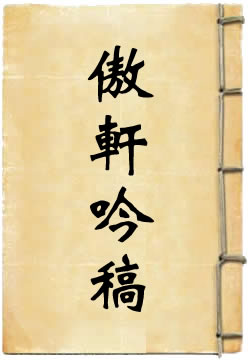 傲軒吟稿